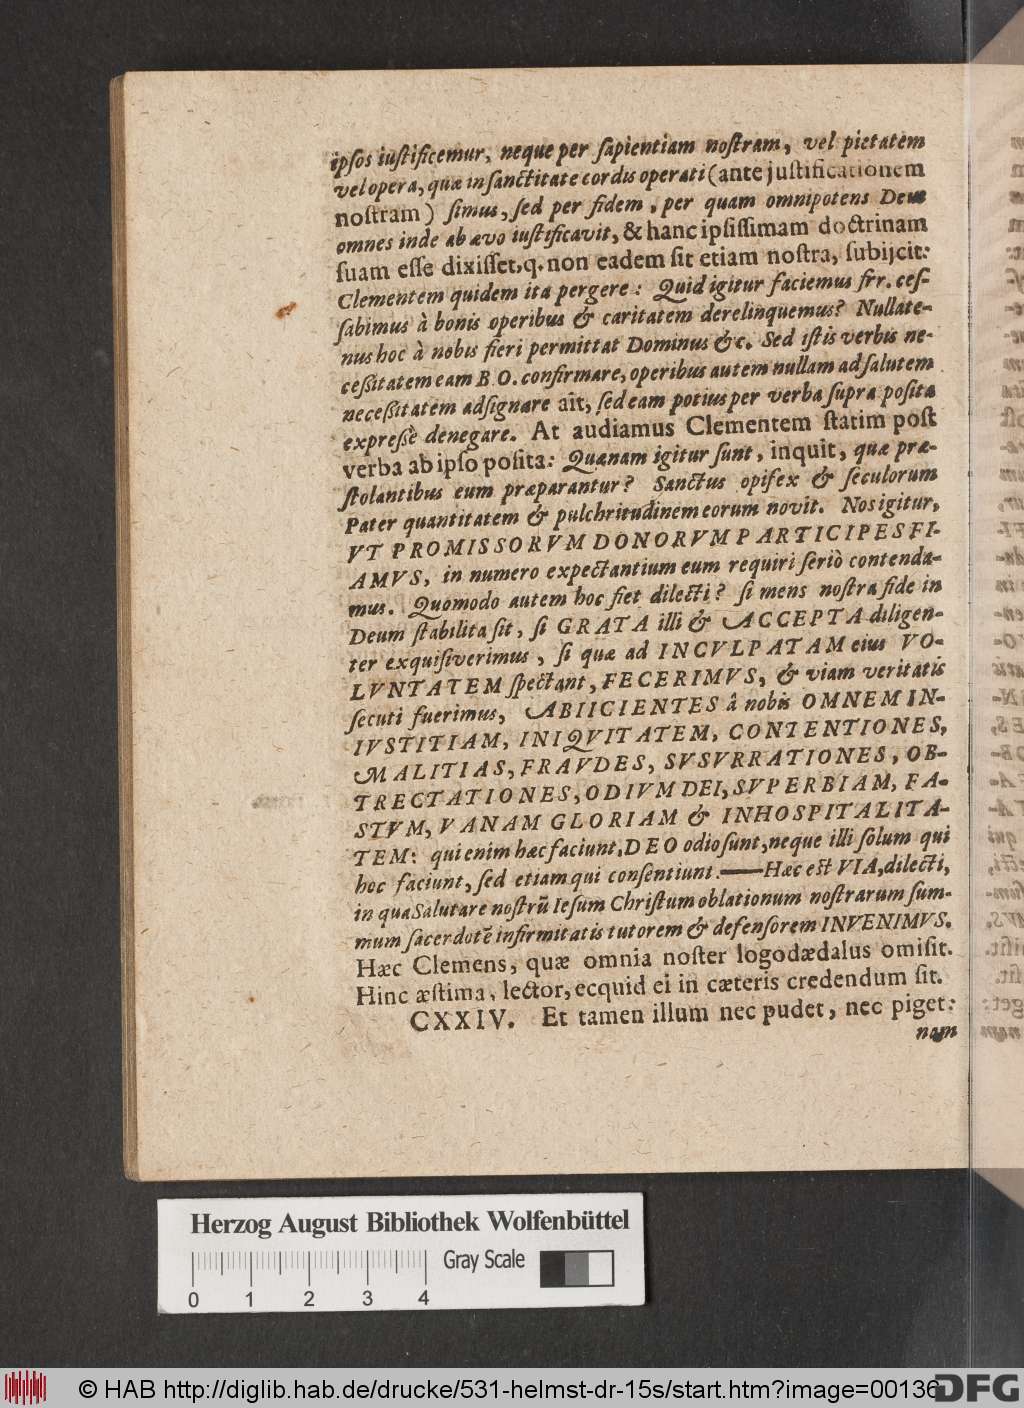 ipsos iustificemur, neque per sapientiam nostram, vel pietatem
vel opera, quæ in sanctitate cordis operati (ante justificationem
nostram) simus, sed per fidem, per quam omnipotens Deus
omnes inde ab ævo iustificavit, & hanc ipsissimam doctrinam
suam esse dixisset, q. non eadem sit etiam nostra, subijcit:
Clementem quidem ita pergere: Quid igitur faciemus frr. ces-
sabimus à bonis operibus & caritatem derelinquemus? Nullate-
nus hoc à nobis fieri permittat Dominus &c. Sed istis verbis ne-
cessitatem eam B.O. confirmare, operibus autem nullam ad salutem
necessitatem adsignare ait, sed eam potius per verba supra posita
expressè denegare. At audiamus Clementem statim post
verba ab ipso posita: Quænam igitur sunt, inquit, quæ præ-
stolantibus eum præparantur? Sanctus opifex & seculorum
Pater quantitatem & pulchritudinem eorum novit. Nos igitur,
VT PROMISSORVM DONORVM PARTICIPES FI-
AMVS, in numero expectantium eum requiri seriò contenda-
mus. Quomodo autem hoc fiet dilecti? si mens nostra fide in
Deum stabilita sit, si GRATA illi & ACCEPTA diligen-
ter exquisiverimus, si quæ ad INCVLPATAM eius VO-
LVNTATEM spectant, FECERIMVS, & viam veritatis
secuti fuerimus, ABIICIENTES â nobis OMNEM IN-
IVSTITIAM, INIQVITATEM, CONTENTIONES,
MALITIAS, FRAVDES, SVSVRRATIONES, OB-
TRECTATIONES, ODIVM DEI, SVPERBIAM, FA-
STVM, VANAM GLORIAM & INHOSPITALITA-
TEM: qui enim hæc faciunt, DEO odio sunt, neque illi sòlum qui
hoc faciunt, sed etiam qui consentiunt.——Hæc est VIA, dilecti,
in qua Salutare nostrũ Iesum Christum oblationum nostrarum sum-
mum sacerdotẽ infirmitatis tutorem & defensorem INVENIMVS.
Hæc Clemens, quæ omnia noster logodædalus omisit.
Hinc æstima, lector, ecquid ei in cæteris credendum sit.
CXXIV. Et tamen illum nec pudet, nec piget:
nam
Herzog August Bibliothek Wolfenbüttel
Gray Scale
0 1 2 3 4
© HAB http://diglib.hab.de/drucke/531-helmst-dr-15s/start.htm?image=00136
DFG